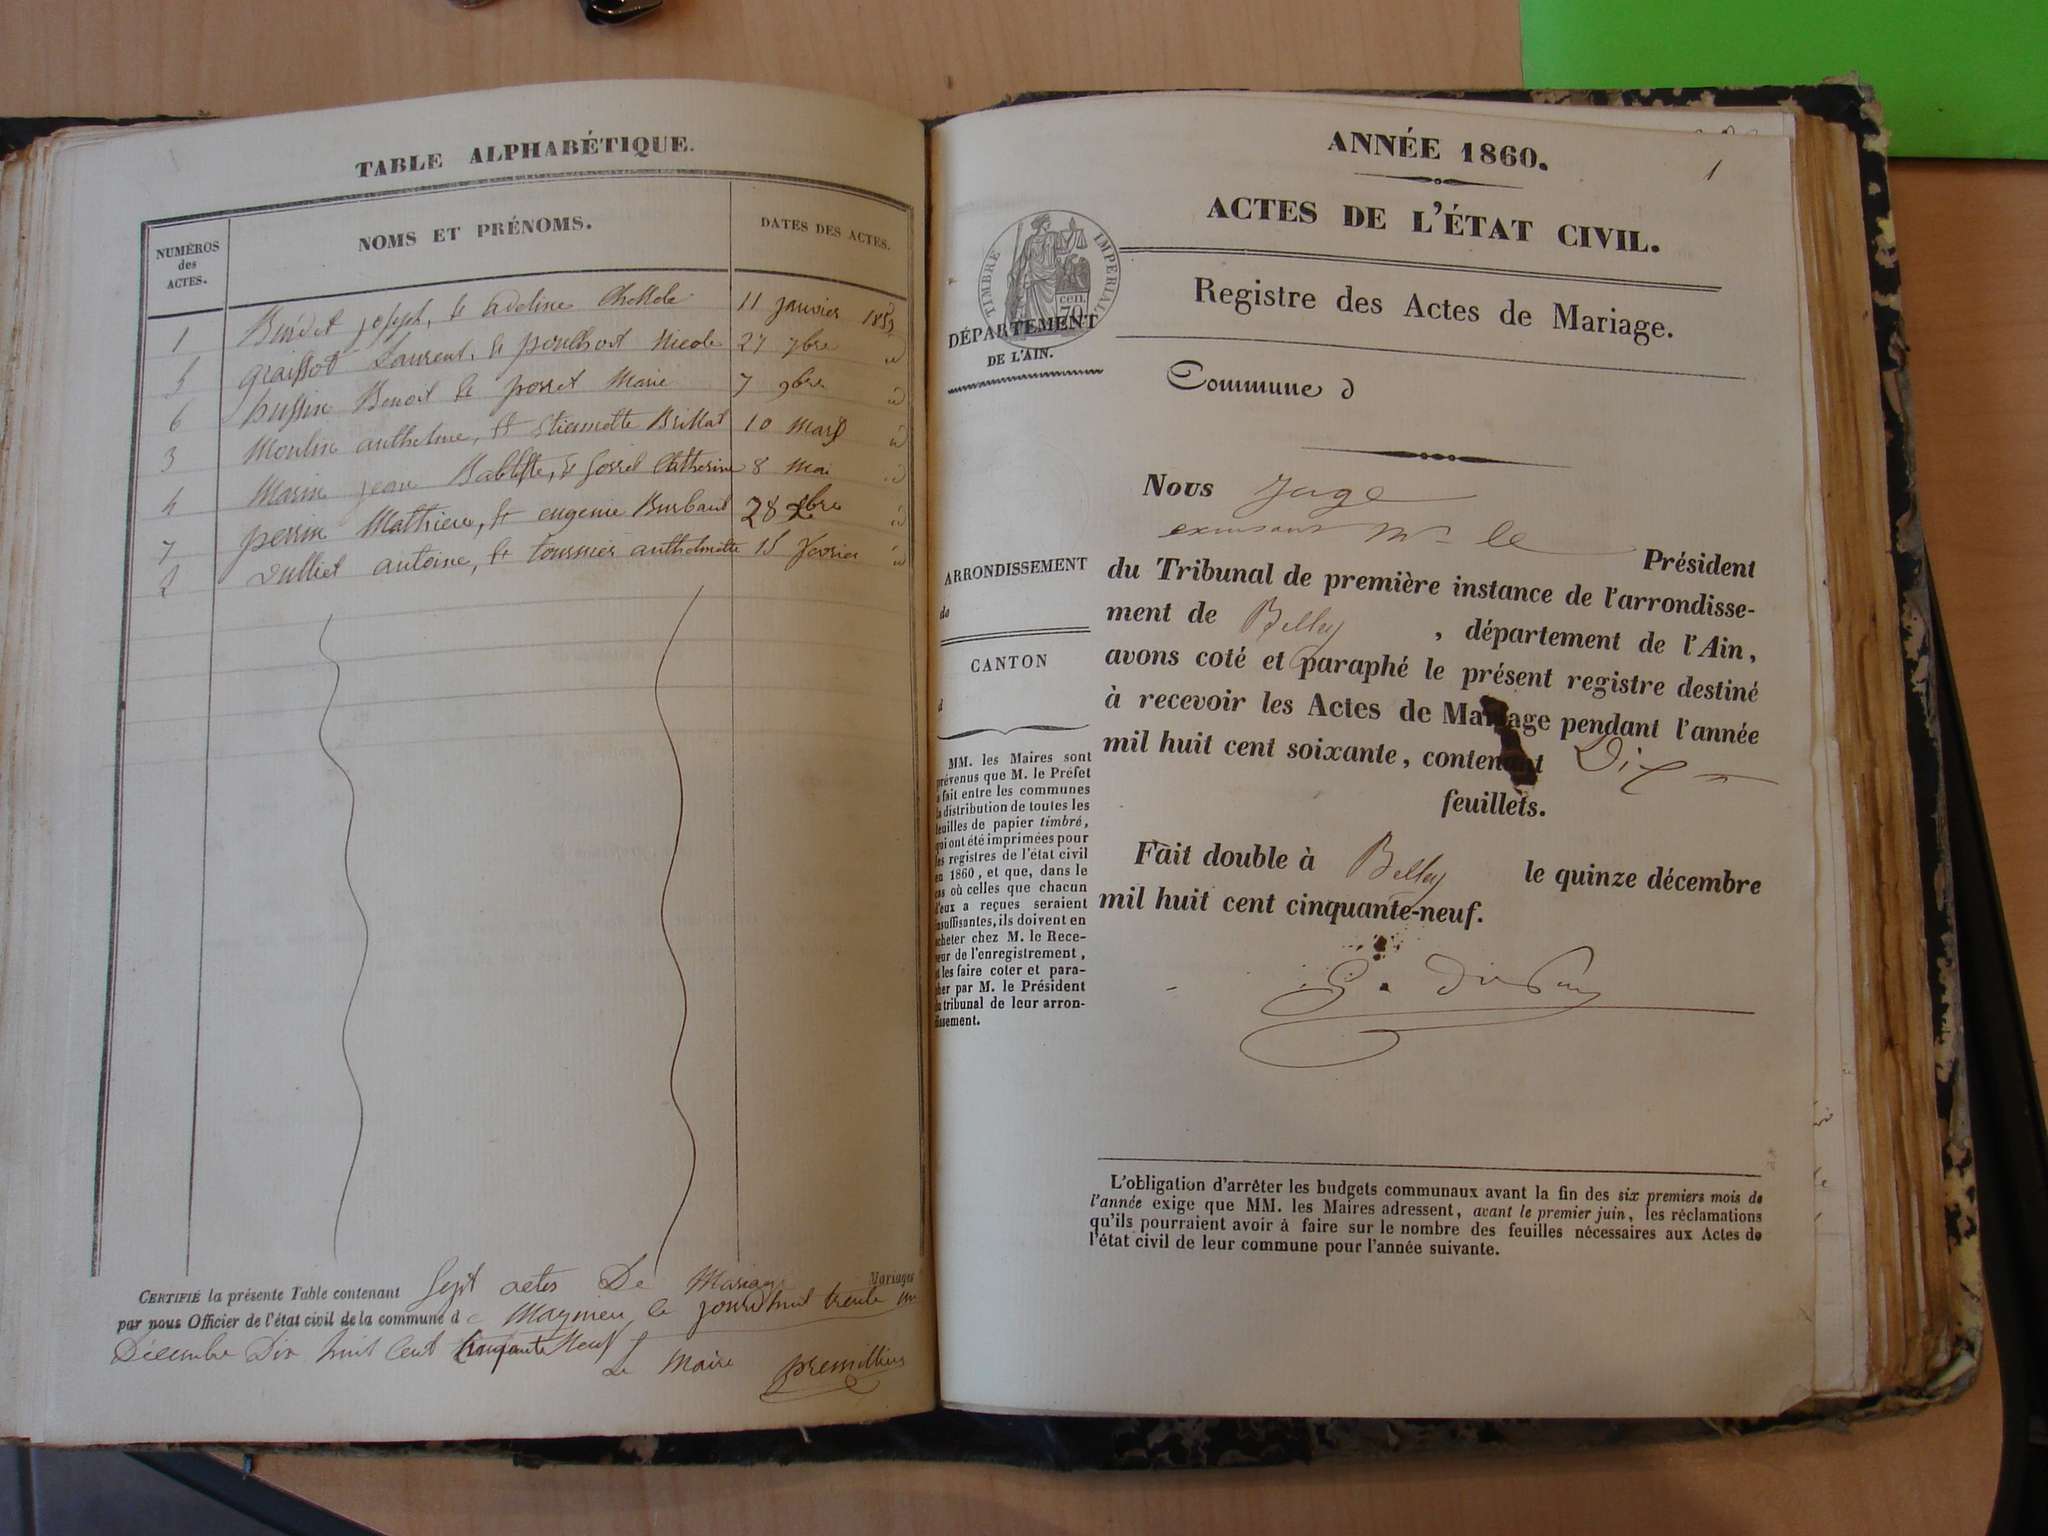 TABLE ALPHABÉTIQUE.
NUMÉROS
des
ACTES.
NOMS ET PRÉNOMS.
DATES DES ACTES.
1 Benoit joseph, et adeline 11 janvier 1859
5 graissot Laurent, et Nicole 27 7bre id
6 Benoit et Marie 7 9bre id
3 Moulin anthelme, et etiennette Brillat 10 Mars id
4 Marin jean Babtiste, et Catherine 8 Mai id
7 perrin Mathieu, et eugenie 28 id
2 antoine, et tournier anthelmette 15 fevrier id
CERTIFIÉ la présente Table contenant Sept actes De Mariage Mariages
par nous Officier de l'état civil de la commune d e le jourdhuit trente un
Décembre Dix huit Cent Cinquante Neuf
Le Maire
ANNÉE 1860.
1
ACTES DE L'ÉTAT CIVIL.
Registre des Actes de Mariage.
TIMBRE IMPERIAL
70 cen.
DÉPARTEMENT
DE L'AIN.
Commune d
Nous Juge
Mr le Président
du Tribunal de première instance de l'arrondisse-
ment de Belley , département de l'Ain,
avons coté et paraphé le présent registre destiné
à recevoir les Actes de Mariage pendant l'année
mil huit cent soixante, contenant Dix
feuillets.
Fait double à Belley le quinze décembre
mil huit cent cinquante-neuf.
ARRONDISSEMENT
de
CANTON
d
MM. les Maires sont
prévenus que M. le Préfet
a fait entre les communes
la distribution de toutes les
feuilles de papier timbré,
qui ont été imprimées pour
les registres de l'état civil
en 1860, et que, dans le
cas où celles que chacun
d'eux a reçues seraient
insuffisantes, ils doivent en
acheter chez M. le Rece-
veur de l'enregistrement,
et les faire coter et para-
pher par M. le Président
du tribunal de leur arron-
dissement.
L'obligation d'arrêter les budgets communaux avant la fin des six premiers mois de
l'année exige que MM. les Maires adressent, avant le premier juin, les réclamations
qu'ils pourraient avoir à faire sur le nombre des feuilles nécessaires aux Actes de
l'état civil de leur commune pour l'année suivante.